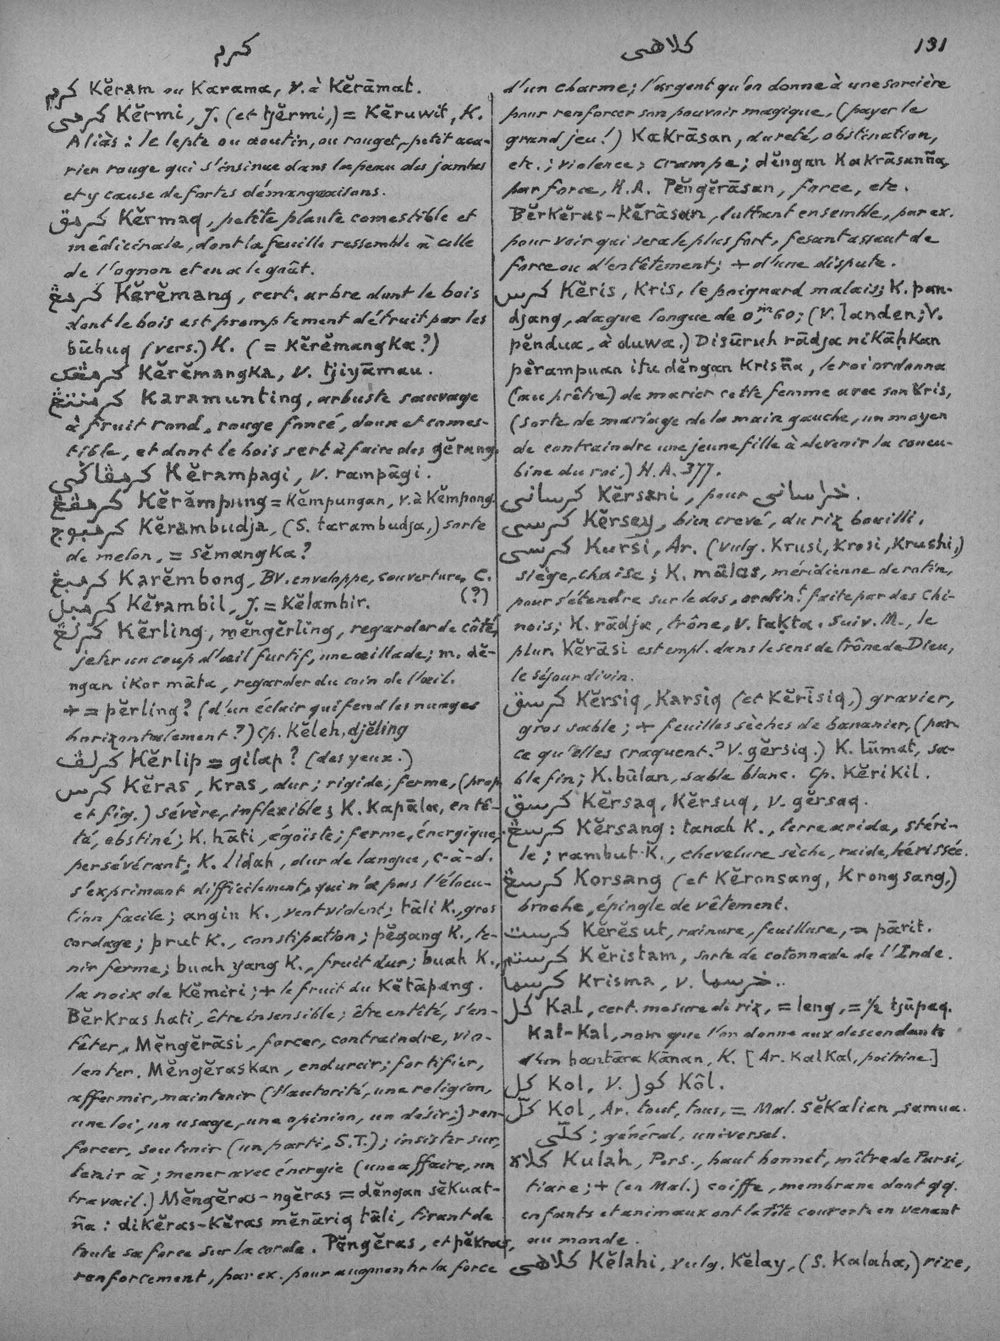 كرم
كلاهى
131
كرم Kĕram ou Karama, V. à Kĕrāmat.
كرمى Kĕrmi, J. (et tjĕrmi,) = Kĕruwit, K.
Aliàs: le lepte ou aoutin, ou rouget, petit aca-
rien rouge qui s'insinue dans la peau des jambes
et y cause de fortes démangeaisons.
كرمق Kĕrmaq, petite plante comestible et
médicinale, dont la feuille ressemble à celle
de l'ognon et en a le goût.
كرمڠ Kĕrĕmang, cert. arbre dont le bois
dont le bois est promptement détruit par les
būbuq (vers.) K. (= Kĕrĕmangka?)
كرمڠك Kĕrĕmangka, V. tjiyāmau.
كرمنتڠ Karamunting, arbuste sauvage
à fruit rond, rouge foncé, doux et comes-
tible, et dont le bois sert à faire des gĕrang.
كرمڤاڬى Kĕrampagi, V. rampāgi.
كرمڤڠ Kĕrămpung = Kĕmpungan, V. à Kĕmpong.
كرمبوج Kĕrambudja, (S. tarambudja,) sorte
de melon, = sĕmangka?
كرمبڠ Karĕmbong, BV. enveloppe, couverture, C.
(?)
كرمبل Kĕrambil, J. = Kĕlambir.
كرلڠ Kĕrling, mĕngĕrling, regarder de côté,
jeter un coup d'œil furtif, une œillade; m. dĕ-
ngan ikor māta, regarder du coin de l'œil.
+ = pĕrling? (d'un éclair qui fend les nuages
horizontalement?) Cp. Kĕleh, djĕling
كرلڤ Kĕrlip = gilap? (des yeux.)
كرس Kĕras, Kras, dur; rigide, ferme, (prop.
et fig.) sévère, inflexible; K. Kapāla, entê-
té, obstiné; K. hāti, égoïste; ferme, énergique,
persévérant; K. lidah, dur de langue, c-à-d.
s'exprimant difficilement, qui n'a pas l'élocu-
tion facile; angin K., vent violent; tāli K., gros
cordage; prut K., constipation; pĕgang K., te-
nir ferme; buah yang K., fruit dur; buah K.,
la noix de Kĕmiri; + le fruit du Kĕtāpang.
Bĕrkras hati, être insensible; être entêté, s'en-
têter. Mĕngĕrāsi, forcer, contraindre, vio-
lenter. Mĕngĕraskan, endurcir; fortifier,
affermir, maintenir (l'autorité, une religion,
une loi, un usage, une opinion, un désir;) ren-
forcer, soutenir (un parti, S.T.); insister sur,
tenir à; mener avec énergie (une affaire, un
travail.) Mĕngĕras-ngĕras = dĕngan sĕkuat-
ña: dikĕras-kĕras mĕnāriq tāli, tirant de
toute sa force sur la corde. Pĕngĕras, et pĕkras,
renforcement, par ex. pour augmenter la force
d'un charme; l'argent qu'on donne à une sorcière
pour renforcer son pouvoir magique, (payer le
grand jeu!) Kakrāsan, dureté, obstination,
etc.; violence; crampe; dĕngan Kakrāsanña,
par force, H.A. Pĕngĕrāsan, force, etc.
Bĕrkĕras-Kĕrāsan, luttant ensemble, par ex.
pour voir qui sera le plus fort, fesant assaut de
force ou d'entêtement; + d'une dispute.
كرس Kĕris, Kris, le poignard malais; K. pan-
djang, dague longue de 0,m60; (V. landen; V.
pĕndua, à duwa.) Disūruh rādja nikāḥkan
pĕrampuan itu dĕngan Krisña, le roi ordonna
(au prêtre) de marier cette femme avec son Kris,
(sorte de mariage de la main gauche, un moyen
de contraindre une jeune fille à devenir la concu-
bine du roi.) H.A. 377.
كرسانى Kĕrsani, pour خراسانى.
كرسى Kĕrsey, bien crevé, du riz bouilli.
كرسى Kursi, Ar. (vulg. Krusi, Krosi, Krushi,)
siège, chaise; K. mālas, méridienne de rotin,
pour s'étendre sur le dos, ordint faite par des Chi-
nois; K. rādja, trône, V. takta. Suiv. M., le
plur. Kĕrāsi est empl. dans le sens de trône de Dieu,
le séjour divin.
كرسق Kĕrsiq, Karsiq (et Kĕrīsiq,) gravier,
gros sable; + feuilles sèches de bananier, (par-
ce qu'elles craquent? V. gĕrsiq.) K. lūmat, sa-
ble fin; K. būlan, sable blanc. Cp. Kĕrikil.
كرسق Kĕrsaq, Kĕrsuq, V. gĕrsaq.
كرسڠ Kĕrsang: tanah K., terre aride, stéri-
le; rambut K., chevelure sèche, raide, hérissée.
كرسڠ Korsang (et Kĕronsang, Krongsang,)
broche, épingle de vêtement.
كرست Kĕrĕsut, rainure, feuillure, = pārit.
كرستم Kĕristam, sorte de cotonnade de l'Inde.
كرسما Krisma, V. خرسما.
كل Kal, cert. mesure de riz, = leng, = ½ tjūpaq.
Kal-Kal, nom que l'on donne aux descendants
d'un bantāra Kānan, K. [Ar. Kalkal, poitrine.]
كل Kol, V. كول Kôl.
كلّ Kol, Ar. tout, tous, = Mal. sĕkalian, samua.
كلّى; général, universel.
كلاه Kulah, Pers., haut bonnet, mître de Parsi,
tiare; + (en Mal.) coiffe, membrane dont qq.
enfants et animaux ont la tête couverte en venant
au monde.
كلاهى Kĕlahi, vulg. Kĕlay, (S. Kalaha,) rixe,